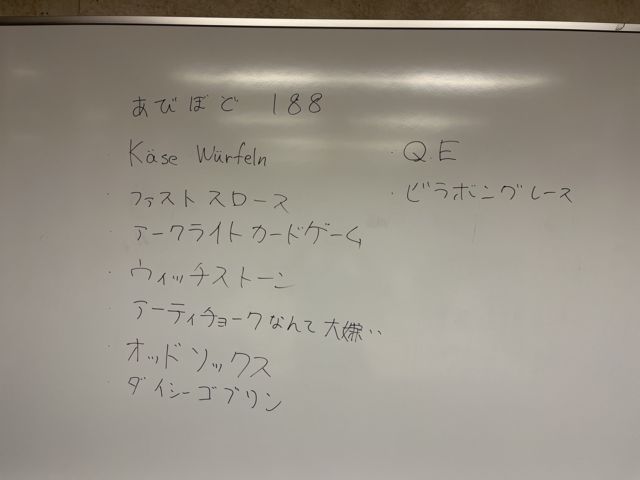 あびぼど 188
Käse Würfeln
ファスト スロース
アークライト カードゲーム
ウィッチストーン
アーティチョークなんて 大嫌‥
オッド ソックス
ダイシーゴブリン
・Q.E
・ビラボングレース